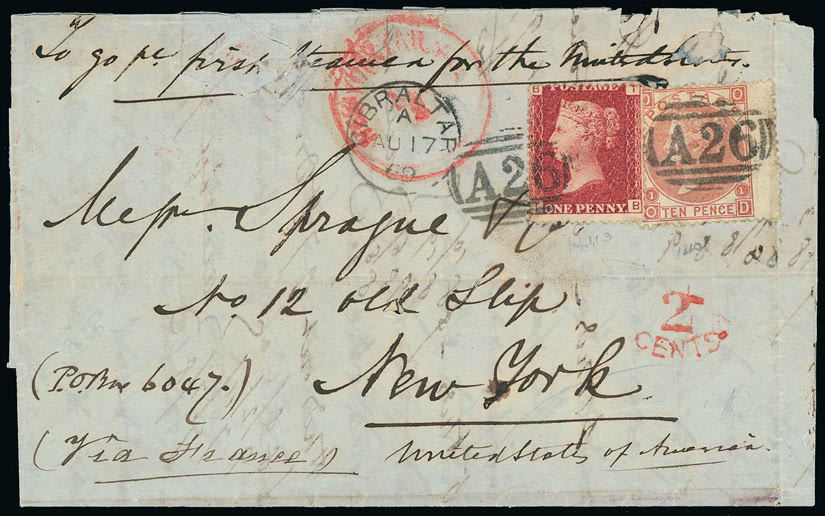 To go pr. first Steamer for the United States.
GIBRALTAR
A
AU 17
B T
POSTAGE
ONE PENNY B
A26
POSTAGE
O
1 1
O TEN PENCE D
A26
Messrs. Sprague & Co
No. 12 old Slip
2
CENTS
(P.O. Box 6047.)
New York
(Via France)
United States of America.